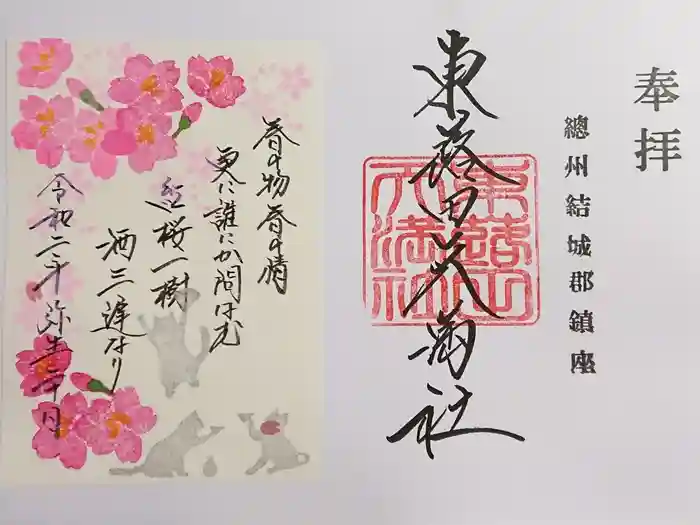 奉拝
總州結城郡鎮座
東蕗田天満社
東蕗田
天満社
春の物春の情
更に誰にか問はむ
紅桜一樹
酒三遅なり
令和二年弥生